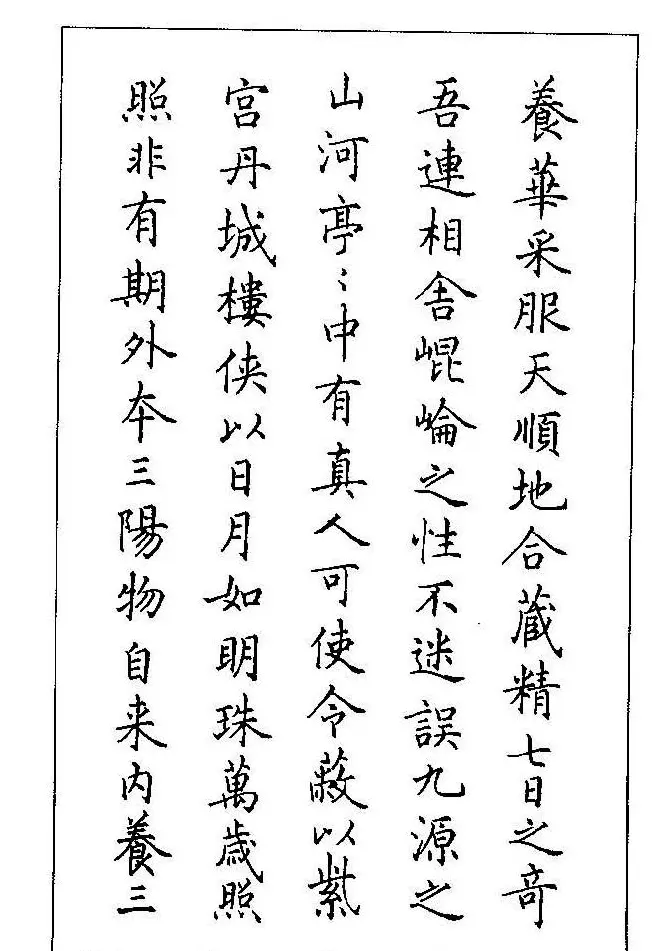 養華采服天順地合蔵精七日之竒
吾連相舎崐崘之性不迷誤九源之
山河亭〻中有真人可使令蔽以紫
宮丹城樓侠以日月如明珠萬歳照
照非有期外夲三陽物自来内養三